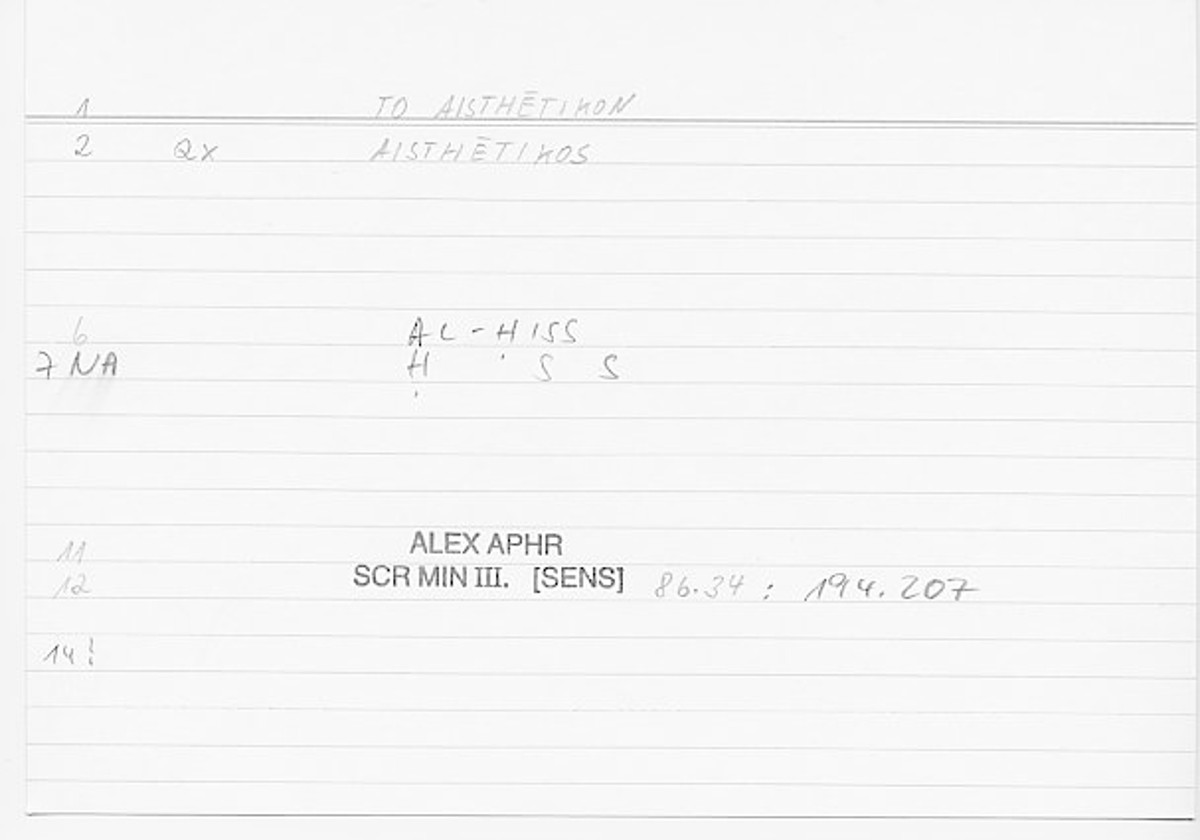 1 TO AISTHĒTIKON
2 QX AISTHĒTIKOS
6 AL-HISS
7 NA Ḥ ' S S
11 ALEX APHR
12 SCR MIN III. [SENS] 86.34 : 194.207
14 :